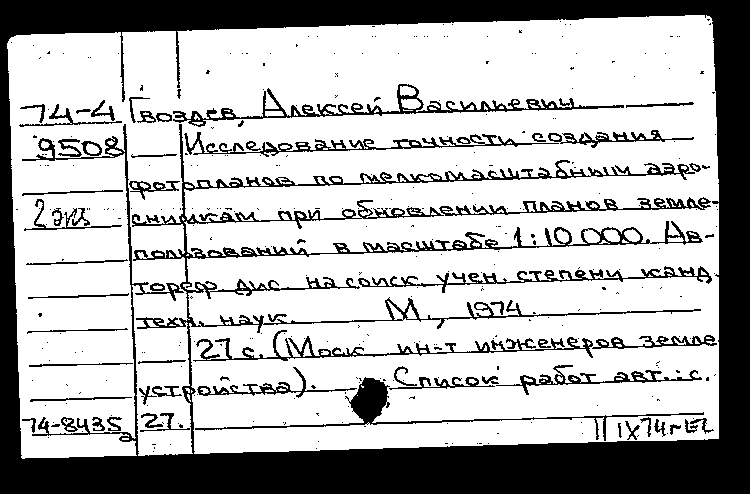 74-4 Гвоздев, Алексей Васильевич.
9508 Исследование точности создания
фотопланов по мелкомасштабным аэро-
2 экз снимкам при обновлении планов земле-
пользований в масштабе 1:10 000. Ав-
тореф дис. на соиск. учен. степени канд.
техн. наук. М., 1974.
27 с. (Моск. ин-т инженеров земле
устройства). Список работ авт.: с.
74-8435а 27.
IX 74г